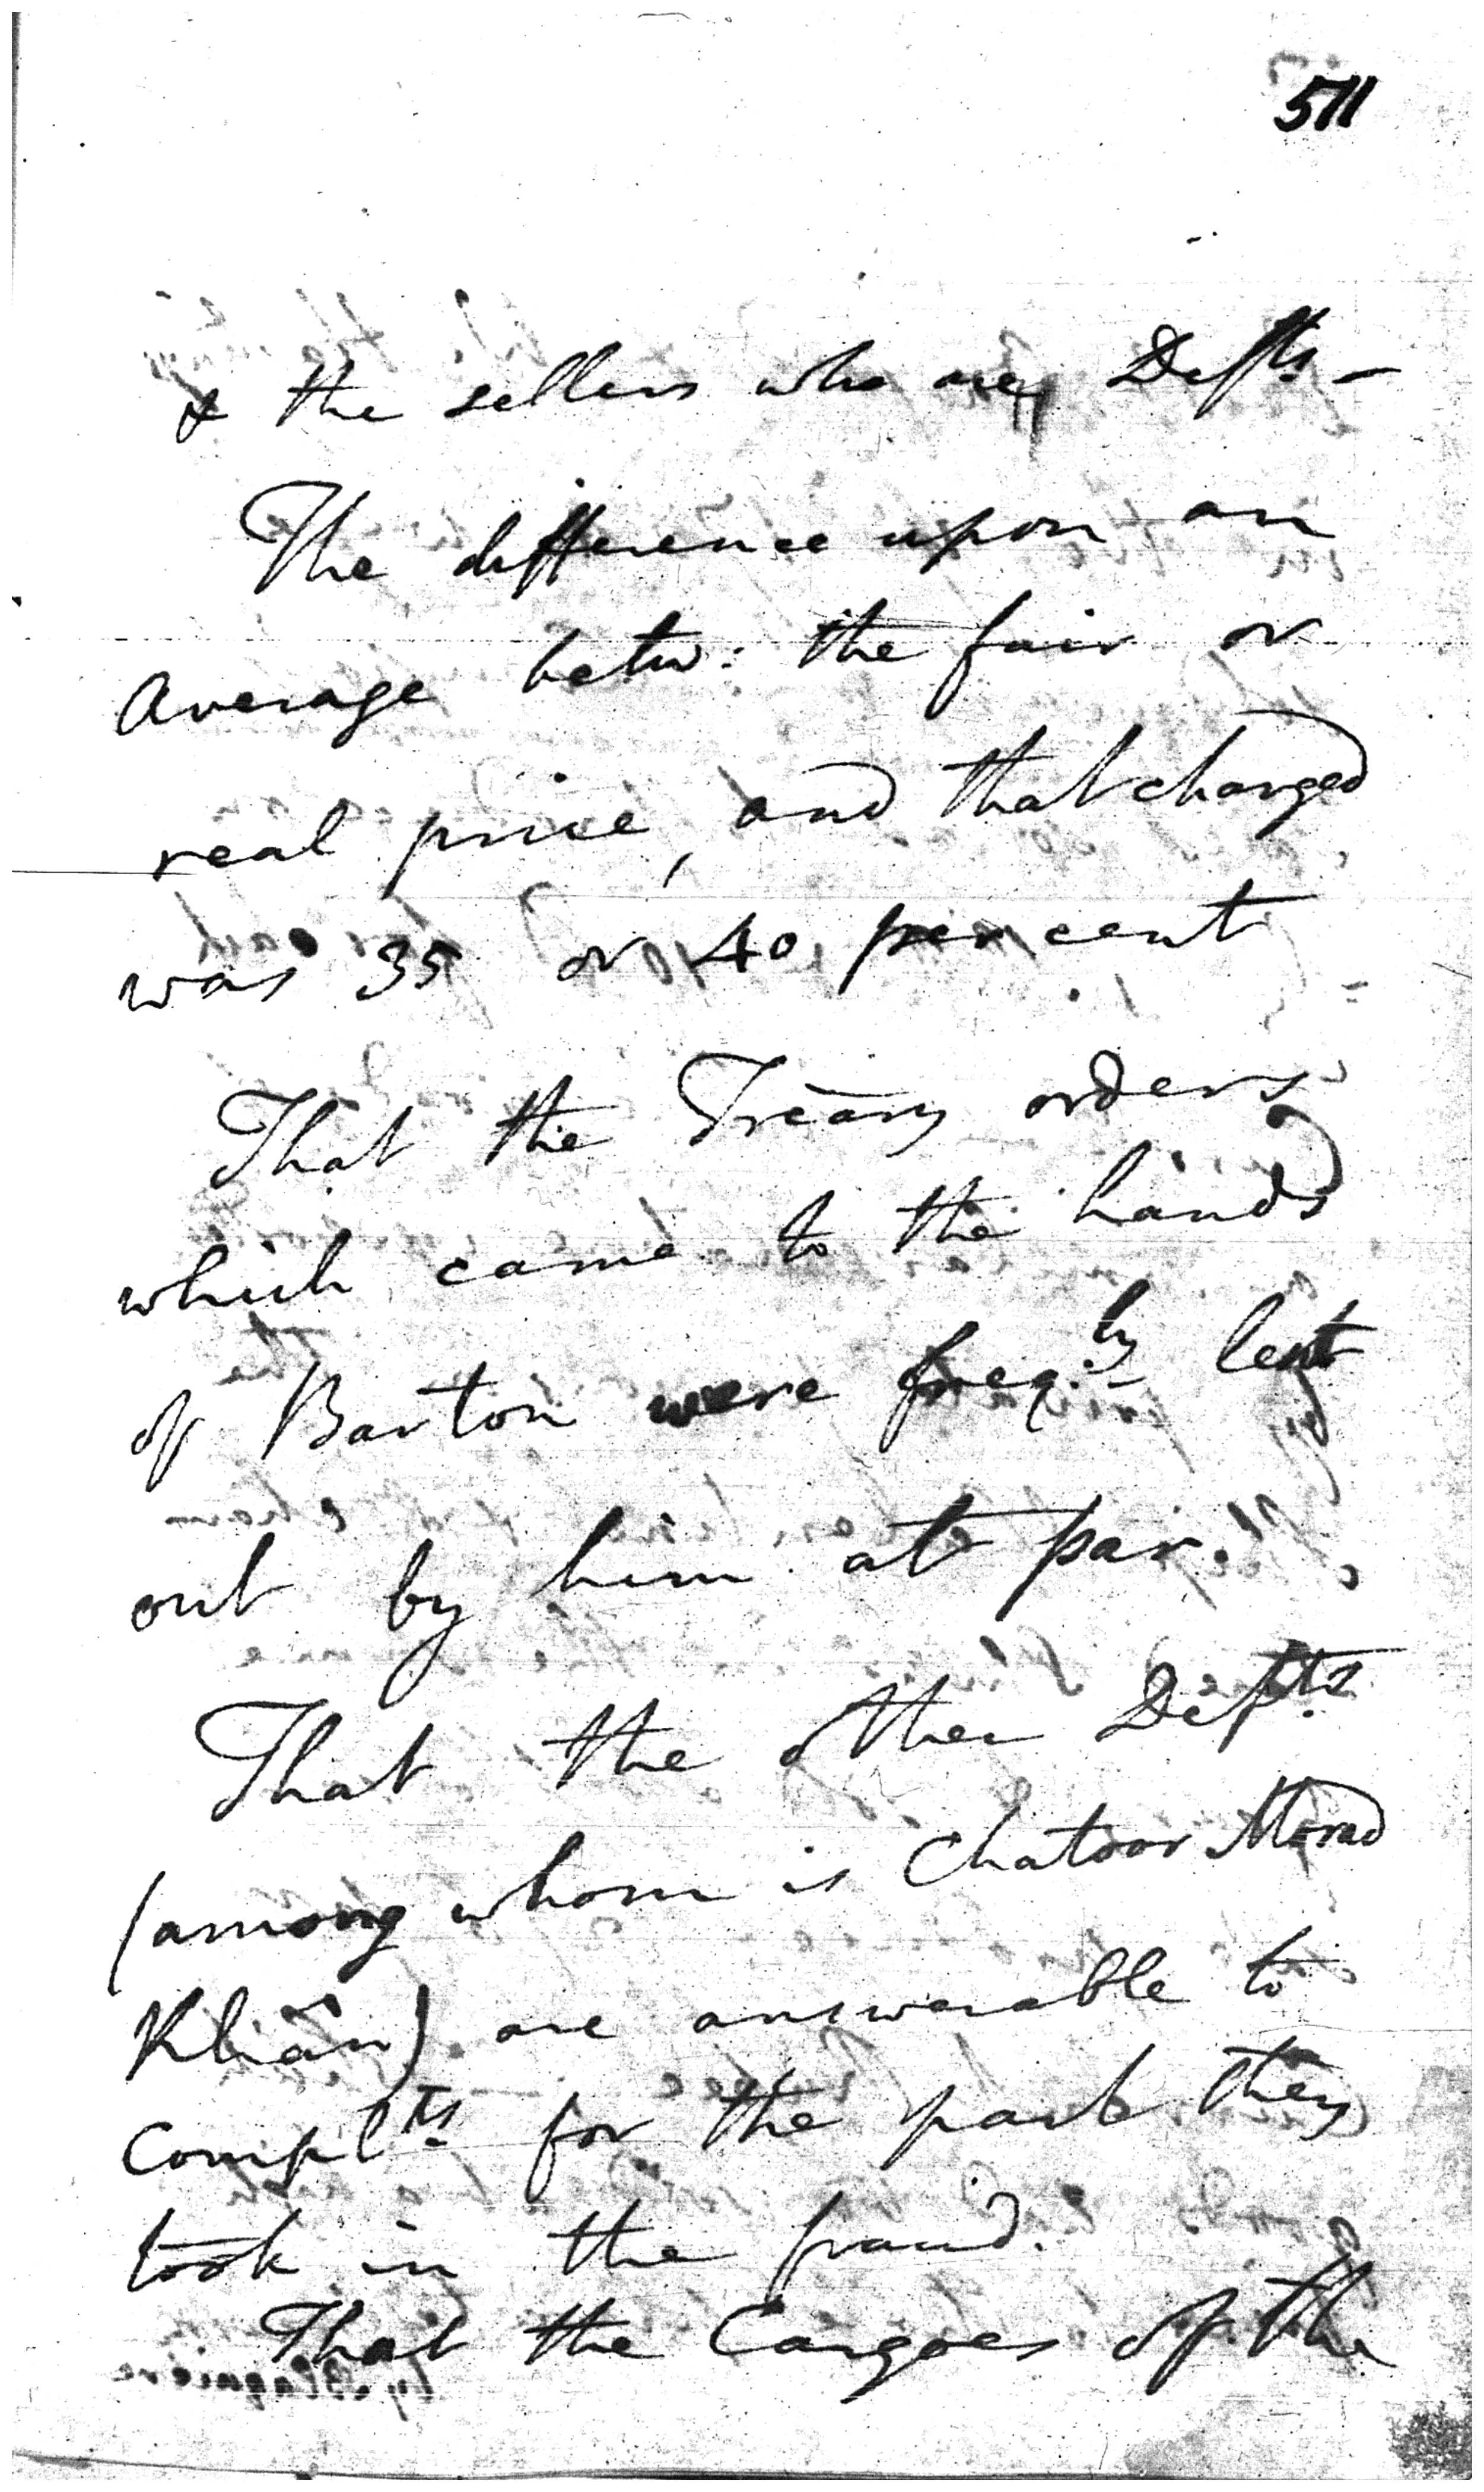 511
& the sellers who are Defts. —
The difference upon an
Average betw: the fair or
real price, and that charged
was 35 or 40 per cent
That the Treasy orders
which came to the hands
of Barton were freq.ly lent
out by him at par.
That the other Defts.
(among whom is Chatoor Morad
Khân) are answerable to
Complts. for the part they
took in the fraud.
That the Cargoes of the